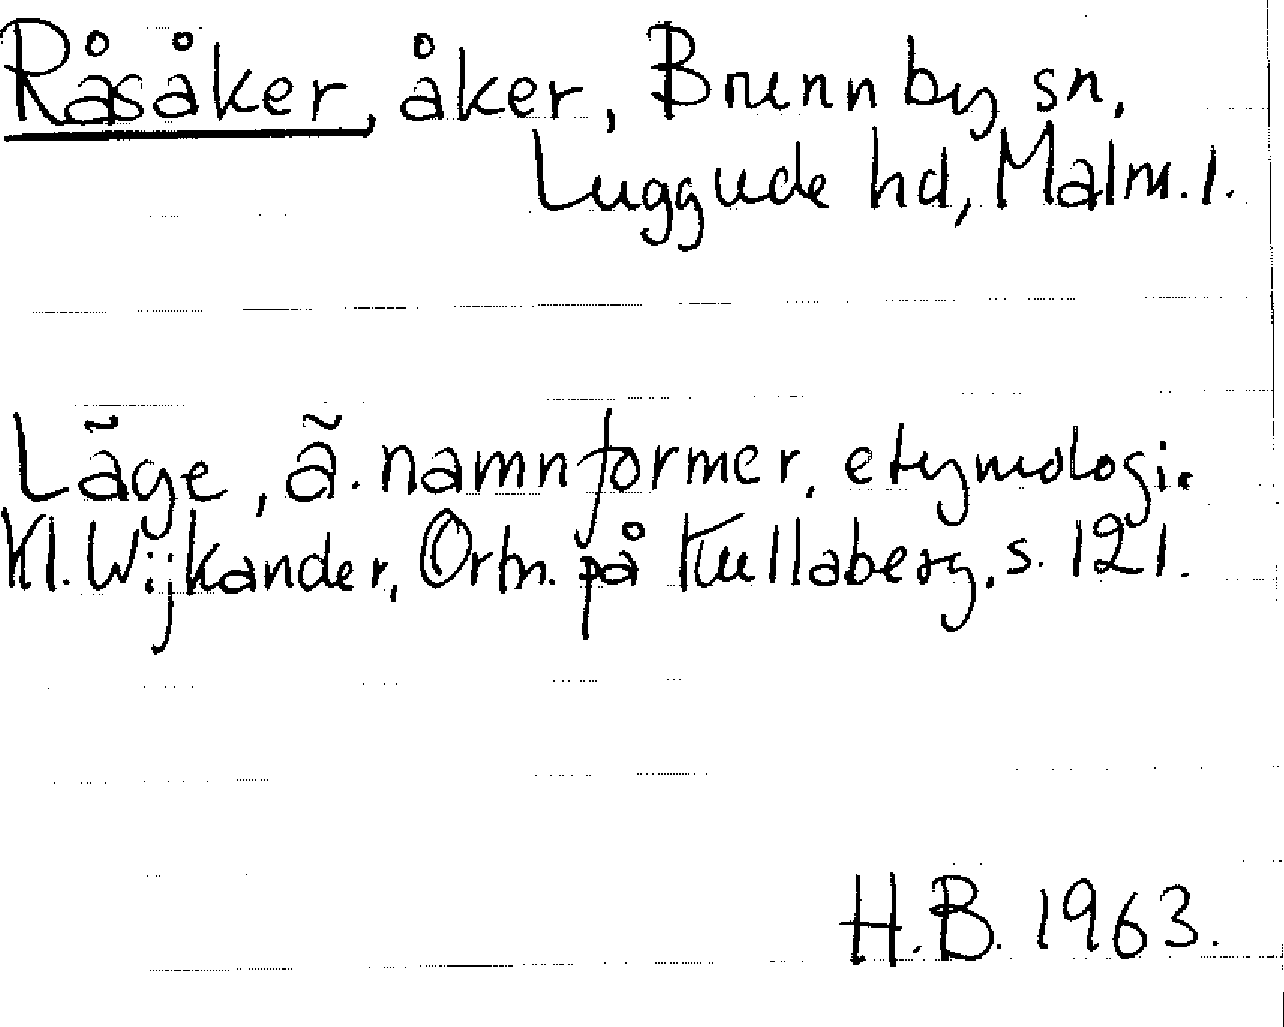 Råsåker, åker, Brunnby sn,
Luggude hd, Malm. l.
Läge, ä. namnformer, etymologi.
Kl. Wijkander, Ortn. på Kullaberg, s. 121.
H.B. 1963.